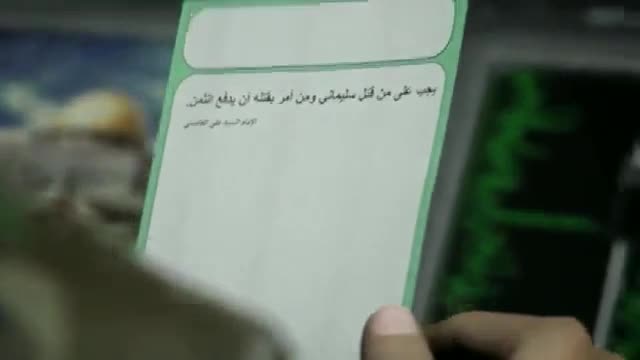 يجب على من قتل سليماني ومن أمر بقتله أن يدفع الثمن.
الإمام السيد علي الخامنئي